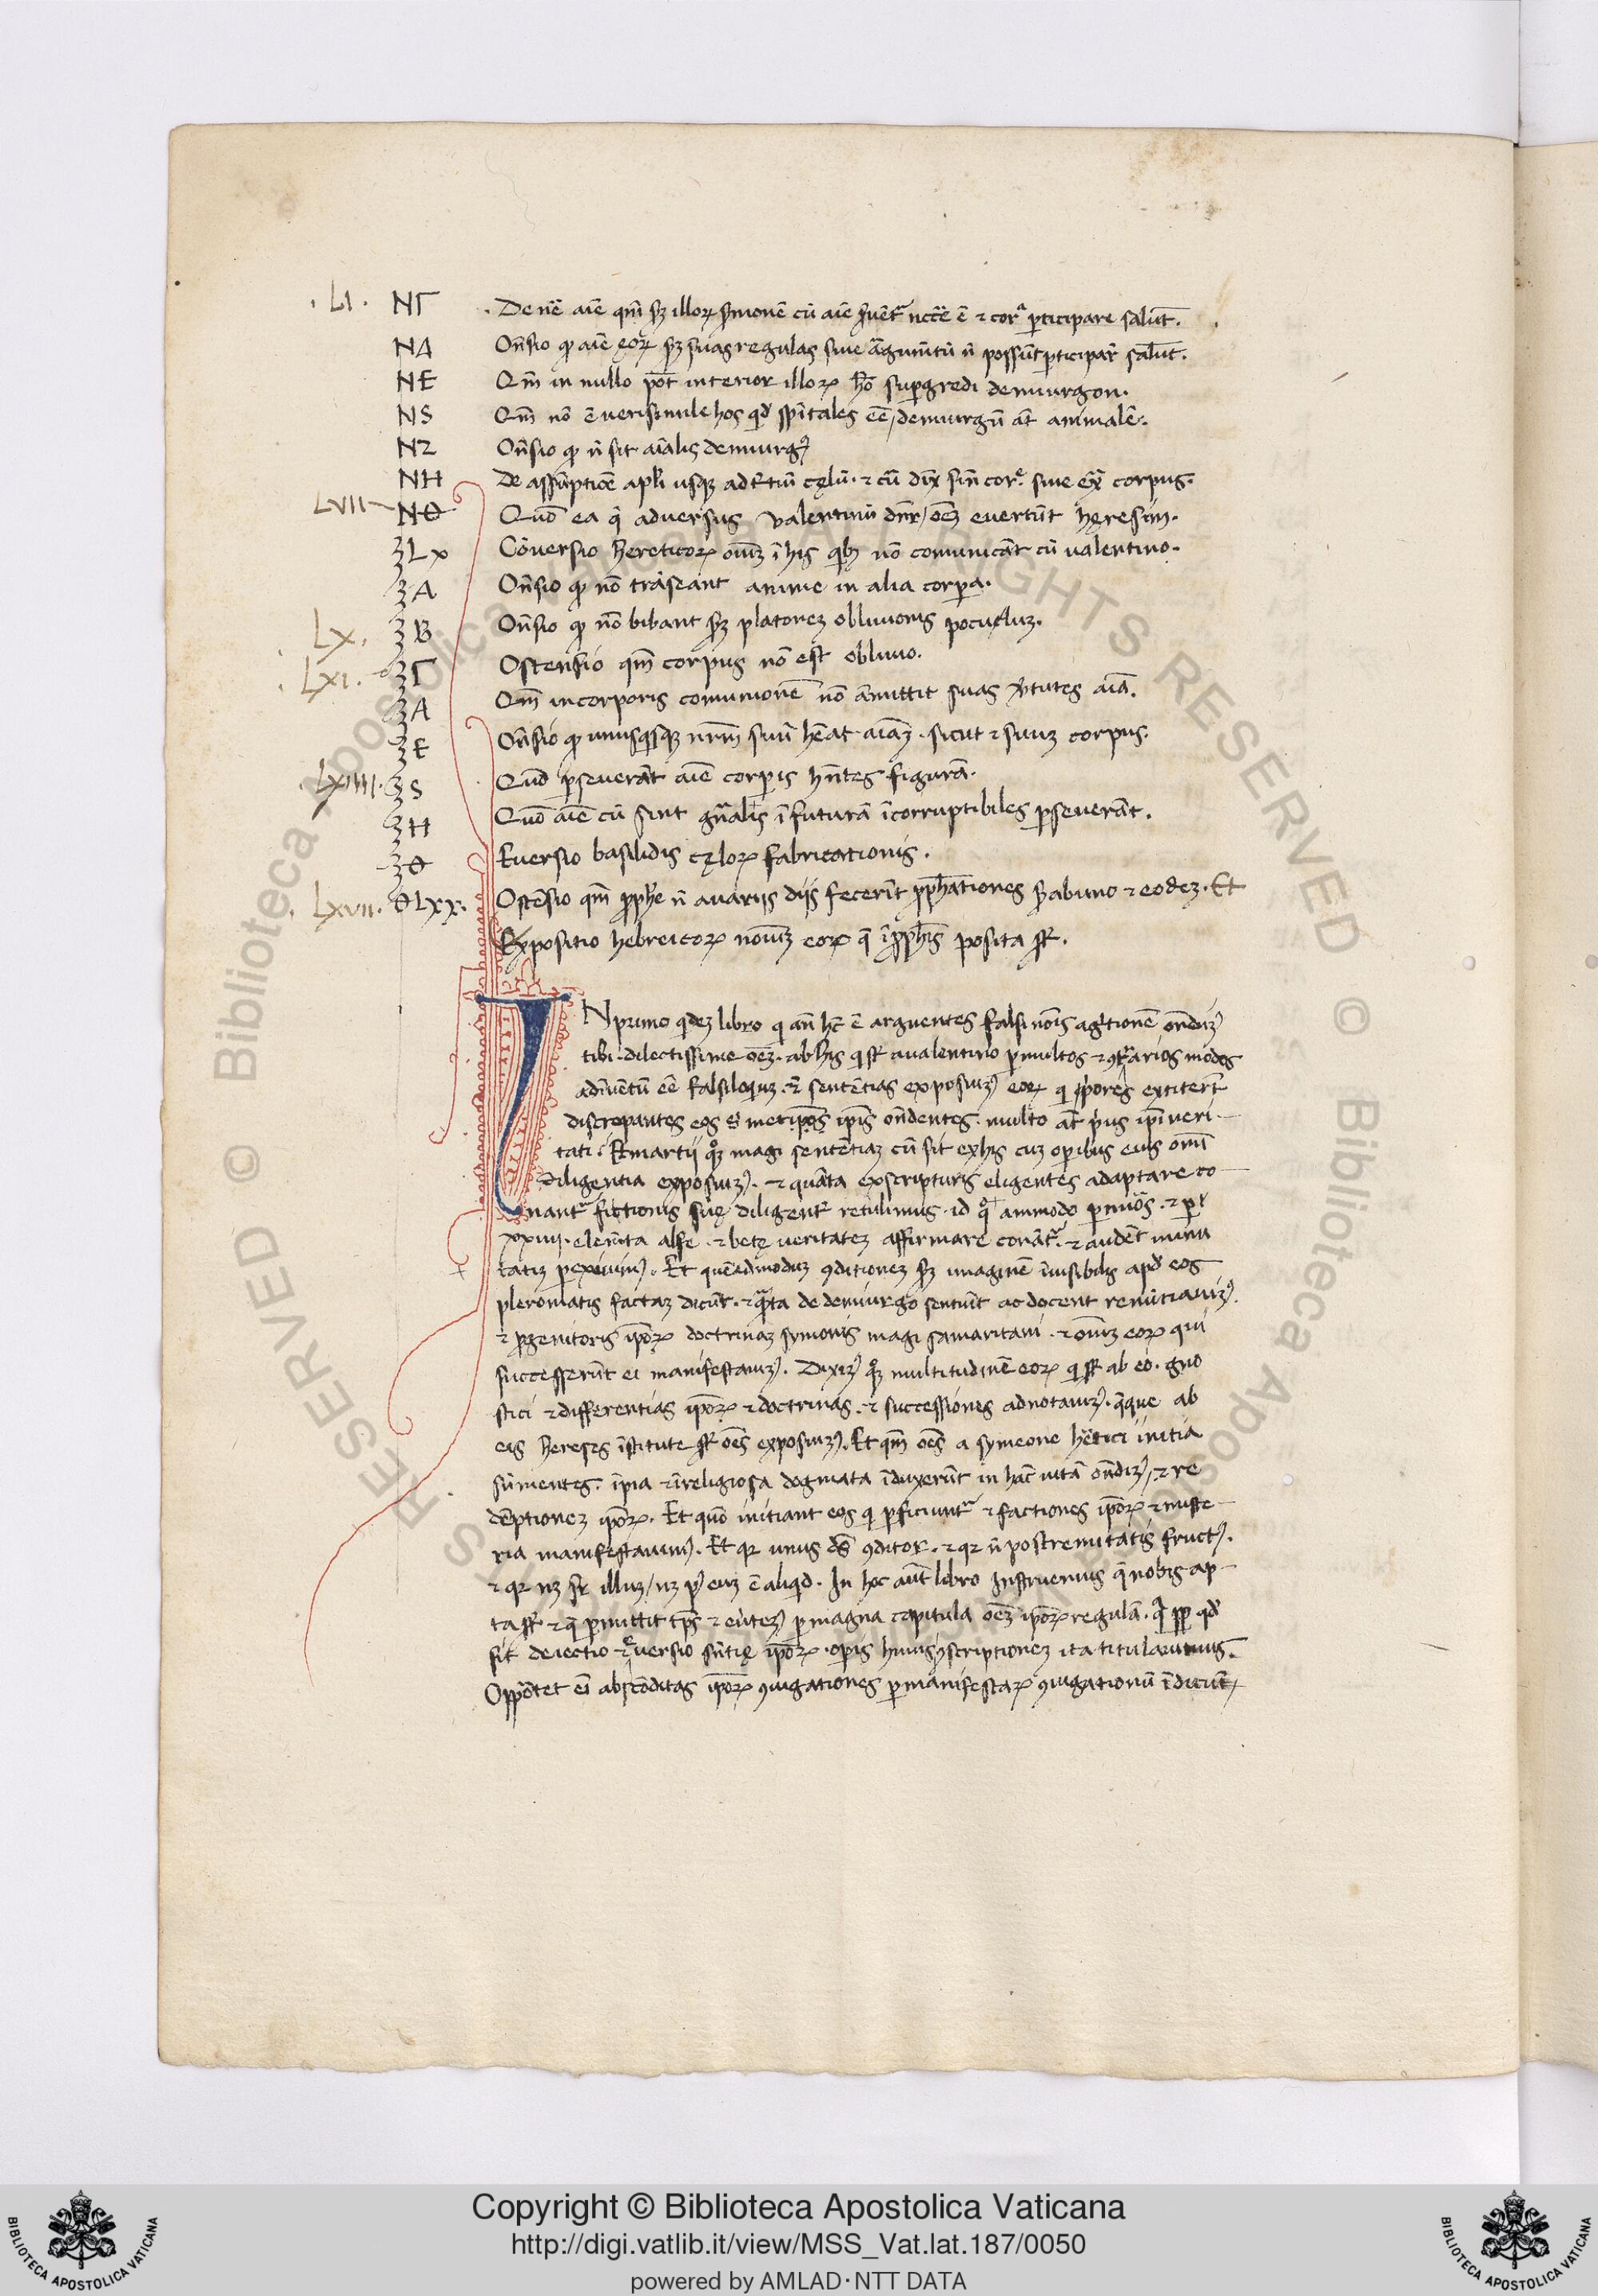 . LI . NΓ . De nē aīe qm̄ sꝫ illoꝝ sermonē cū aīe īuēt̄ ncc̄e ē ⁊ corᵃ ꝑticipare salut̄.
NΔ On̄sio ꝙ aīe eoꝝ sꝫ suas regulas siue argumt̄ū n̄ possūt ꝑticipar̄ salut̄.
NE Qm̄ in nullo pōt interior illoꝝ hō suꝑgredi demiurgon.
NS Qm̄ nō ē uerisimile hos qd̄ spītales eē / demiurgū at̄ animalē.
NZ On̄sio ꝙ n̄ sit aīalis demiurgꝰ
NH De assūptiōe apl̄i usqꝫ ad t̄tiū cęlū. ⁊ cū dix̄ sīn corᵉ. siue ex̄ corpus.
LVII NΘ Quō ea q̄ aduersus Valentinū dn̄r / oēꝫ euertūt hęresim.
ꝫLx Cōuersio hereticoꝝ oīuꝫ ī his qbꝫ nō comunicāt cū ualentino.
ꝫA On̄sio ꝙ nō trāseant anime in alia corꝑa.
Lx. ꝫB On̄sio ꝙ nō bibant sꝫ platoneꝫ obliuionis poculuꝫ.
. Lxı. ꝫΓ Ostensio qm̄ corpus nō est obliuio.
ꝫΔ Qm̄ in corporis comunionē nō amittit suas v̄tutes aīa.
ꝫE On̄sio ꝙ unusqsqꝫ nr̄m suū hēat aīaꝫ. sicut ⁊ suuꝫ corpus.
. Lxıııı. ꝫS Quō ꝑseuerāt aīe corꝑis hn̄tes figurā.
ꝫH Quō aīe cū sint gn̄alis ī futurā īcorruptibiles ꝑseuerāt.
ꝫΘ Euersio basilidis cęloꝝ fabricationis.
. Lxvıı. ΘLxx. Ostēsio qm̄ ꝓphē n̄ a uarijs dijs fecerīt ꝓph̄ationes s̄ ab uno ⁊ eodeꝫ. Et
Expositio hebreicoꝝ noīuꝫ eoꝝ q̄ ī ꝓph̄is posita sr̄.
IN primo qdeꝫ libro q an̄ hc̄ ē arguentes falsi noīs agitionē on̄diꝫ
tibi. dilectissime oēꝫ. ab his q sr̄ a ualentino ꝑ multos ⁊ ꝯtrarios modos
adinuētū eē falsiloquꝫ. ⁊ sentētias exposuiꝫ eoꝝ q priores extiterīt
discrepantes eos s̄ metip̄os ip̄is on̄dentes. multo at̄ prius ip̄i ueri-
tati. Et martij qꝫ magi sentētiaꝫ cū sit ex his cuꝫ oꝑibus eius omi
diligentia exposuiꝫ. ⁊ quāta ex scripturis eligentes adaptare co-
nant̄ fictionis suę diligent̄ retulimus. id qᵃ ammodo ꝑ nūos. ⁊ ꝑ
xxiiij. elem̄ta alfe ⁊ betę ueritateꝫ affirmare conāt̄. ⁊ audēt minu
tatiꝫ ꝑexiuimꝰ. Et quēadmoduꝫ ꝯditioneꝫ sꝫ imaginē inuisibilis apd̄ eos
pleromatis factaꝫ dicūt. ⁊ qāta de demiurgo sentiūt ac docent renūtiauiꝫ.
⁊ ꝓgenitoris ip̄oꝝ doctrinaꝫ symonis magi samaritani. ⁊ oīuꝫ eoꝝ qui
successerūt ei manifestauiꝫ. Dixiꝫ qꝫ multitudinē eoꝝ q sr̄ ab eo. gno
stici ⁊ differentias ip̄oꝝ ⁊ doctrinas. ⁊ successiones adnotauiꝫ. q̄que ab
eis hereses īstitute sr̄ oēs exposuiꝫ. Et qm̄ oēs a symeone hētici initia
sūmentes. īpia ⁊ irreligiosa dogmata īduxerūt in hāc uitā on̄diꝫ / ⁊ re
dēptioneꝫ ip̄oꝝ. Et quō initiant eos q ꝑficiunt̄ ⁊ factiones ip̄oꝝ ⁊ miste-
ria manifestauimꝰ. Et qꝛ unus ds̄ ꝯditor. ⁊ qꝛ n̄ postremitatis fructꝰ.
⁊ qꝛ nꝫ sr̄ illuꝫ / nꝫ p̄ euꝫ ē aliqd. In hoc aut̄ libro Instruemus q̄ nobis ap-
ta sr̄ ⁊ q̄ ꝑmittit tp̄s ⁊ euertēꝫ ꝑ magna capitula oēꝫ ip̄oꝝ regulā. q̄ pp qd̄
sit deiectio ⁊ euersio sn̄tię ip̄oꝝ. oꝑis huius ꝯscriptioneꝫ ita titulauimus.
Opportet eī absconditas ip̄oꝝ ꝯiugationes ꝑ manifestaꝝ ꝯiugationū īdiciū /
Copyright © Biblioteca Apostolica Vaticana
http://digi.vatlib.it/view/MSS_Vat.lat.187/0050
powered by AMLAD·NTT DATA